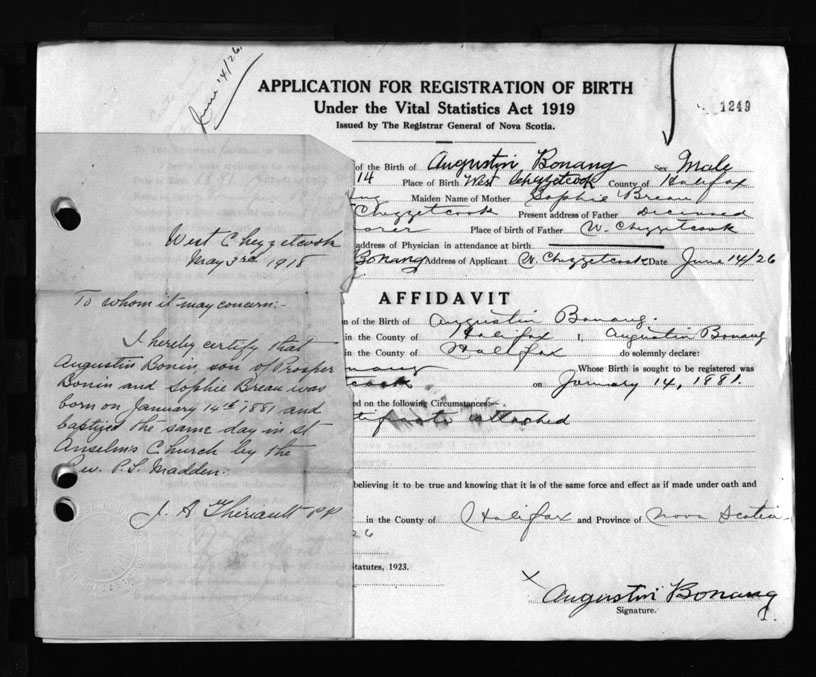 June 14/26
APPLICATION FOR REGISTRATION OF BIRTH
Under the Vital Statistics Act 1919
Issued by The Registrar General of Nova Scotia.
1249
of the Birth of Augustin Bonang Sex Male
14 Place of Birth West Chezzetcook County of Halifax
Maiden Name of Mother Sophie Breau
Chezzetcook Present address of Father Deceased
Place of birth of Father W. Chezzetcook
address of Physician in attendance at birth
Bonang Address of Applicant W. Chezzetcook Date June 14/26
AFFIDAVIT
of the Birth of Augustin Bonang.
in the County of Halifax I, Augustin Bonang
in the County of Halifax do solemnly declare:
Whose Birth is sought to be registered was
on January 14, 1881.
on the following Circumstances
attached
believing it to be true and knowing that it is of the same force and effect as if made under oath and
in the County of Halifax and Province of Nova Scotia.
26
Statutes, 1923.
X Augustin Bonang
Signature.
West Chezzetcook
May 3rd 1918
To whom it may concern:-
I hereby certify that
Augustin Bonin son of Prosper
Bonin and Sophie Breau was
born on January 14th 1881 and
baptized the same day in St
Anselms Church by the
Rev. P. S. Madden.
J. A Theriault PP